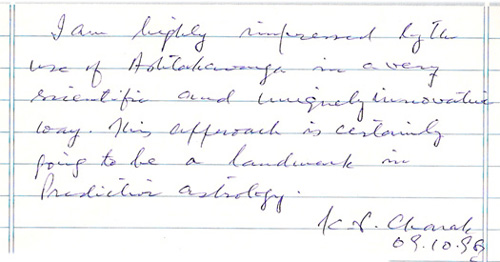 I am highly impressed by the
use of Ashtakavarga in a very
scientific and uniquely innovative
way. This approach is certainly
going to be a landmark in
Predictive astrology.
K.S. Charak
09.10.98